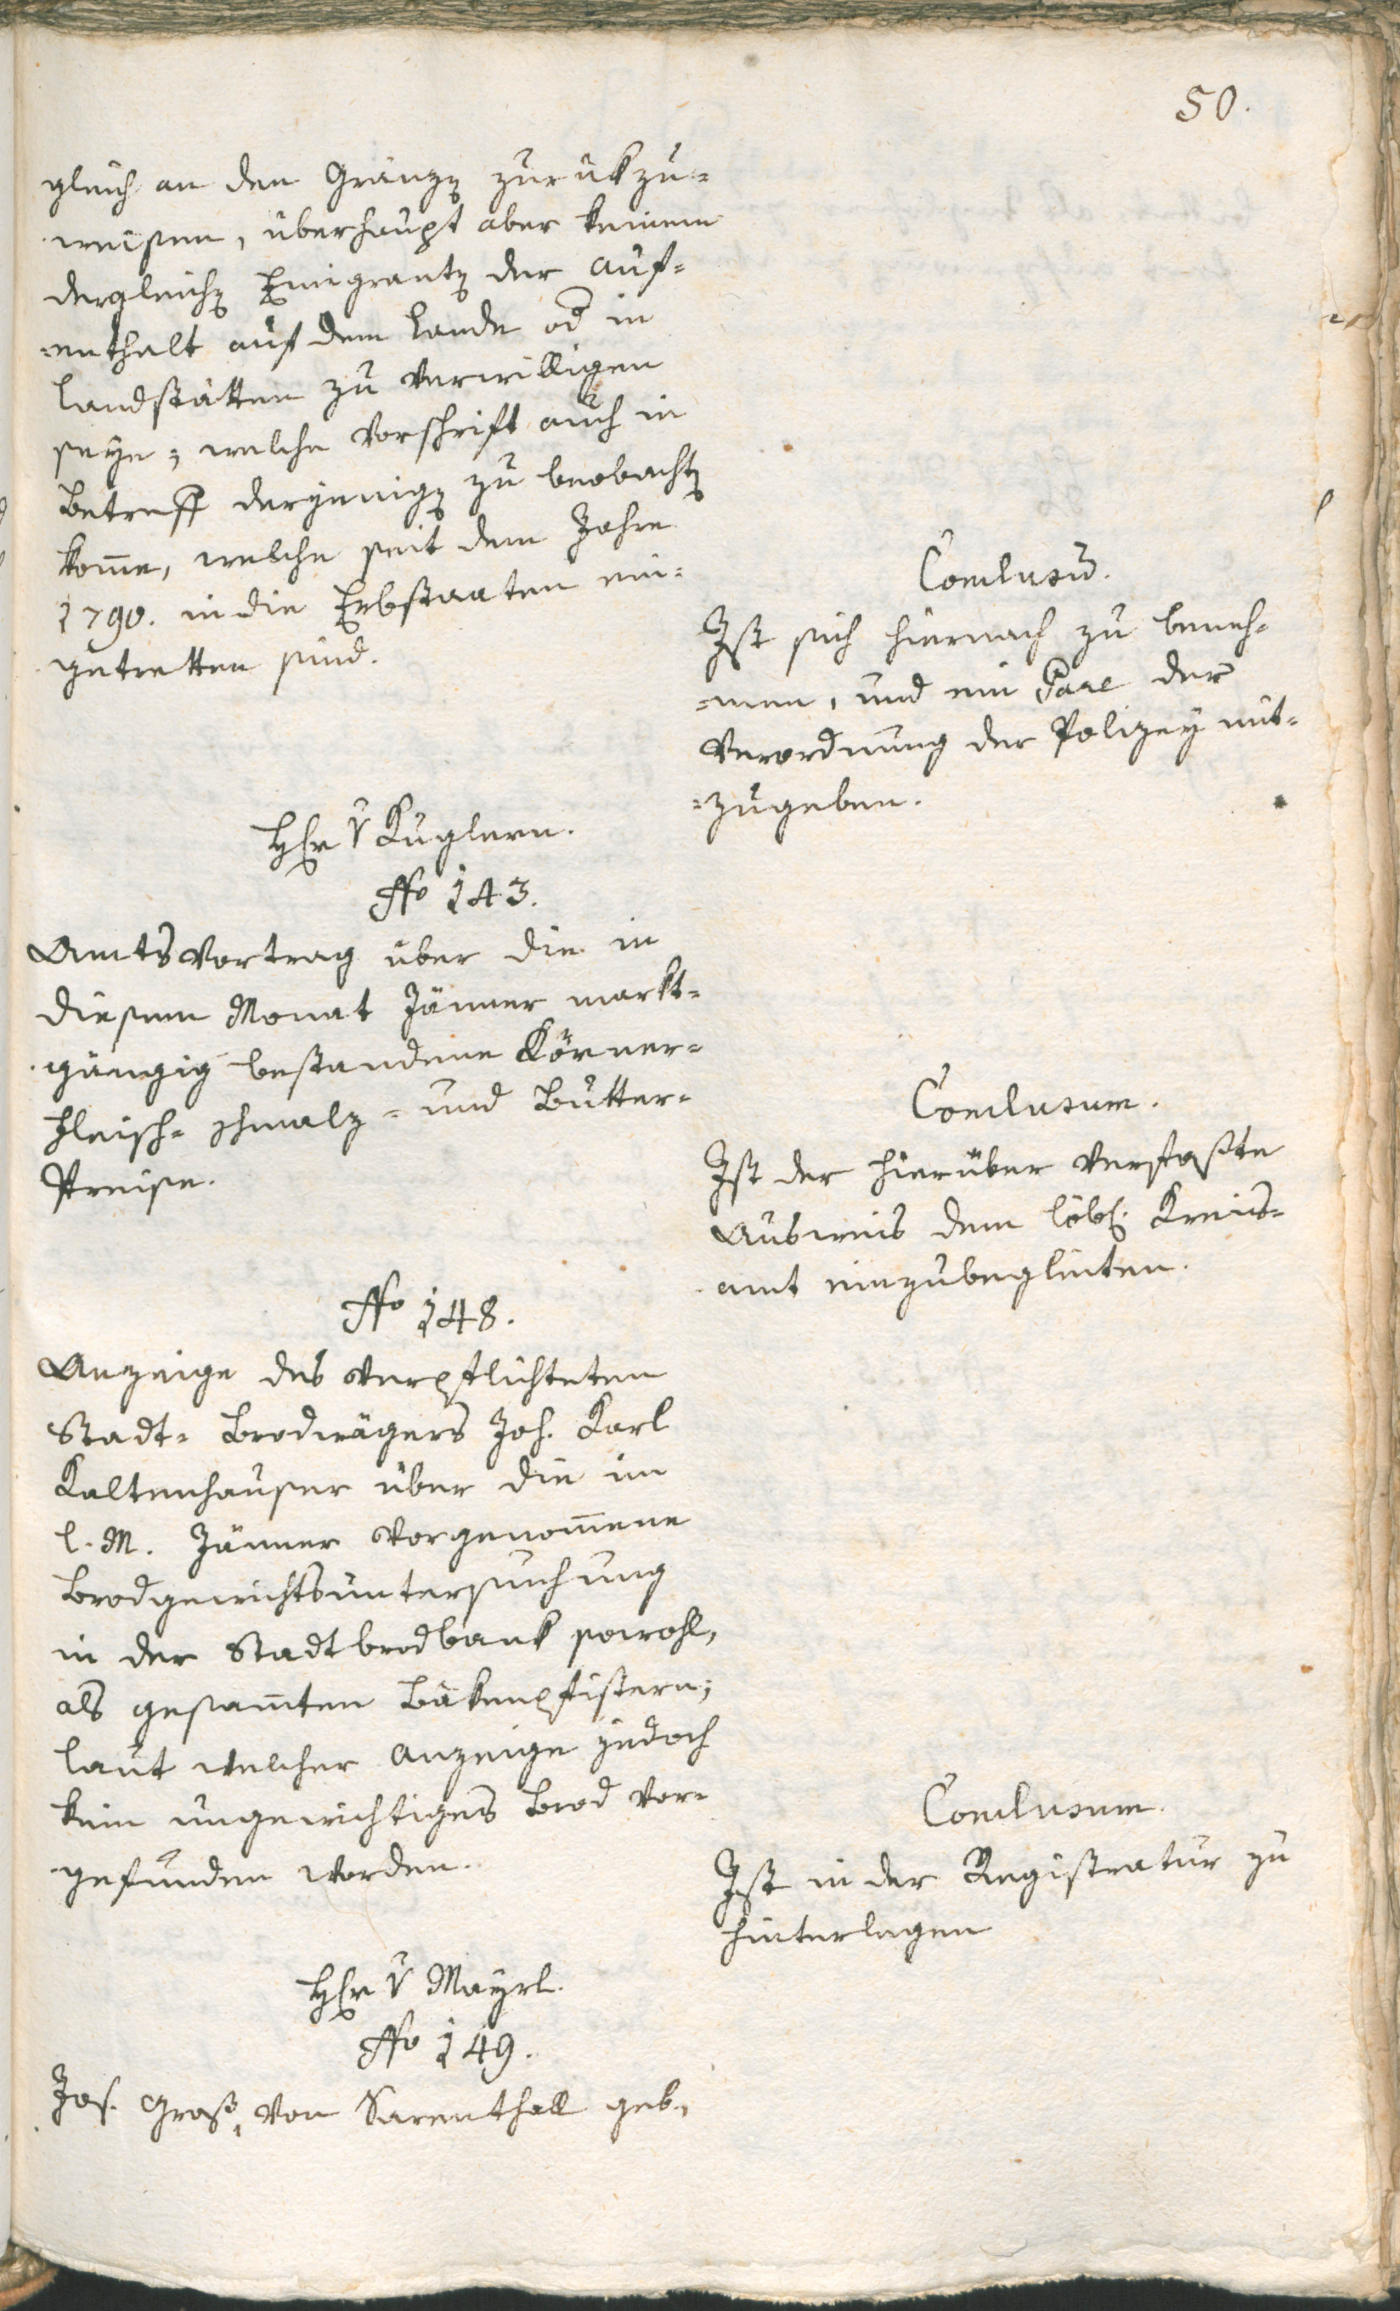 50.
gleich an den Gränzen zurükzu-
weisen, überhaupt aber keinem
dergleichen Emigranten der Auf-
-enthalt auf dem Lande od in
Landstätten zu verwilligen
seye; welche Vorschrift auch in
Betreff derjenigen zu beobachten
kome, welche seit dem Jahre
1790. in die Erbstaaten ein-
getretten sind.
Conclusum.
Ist sich hiernach zu beneh-
-men, und ein Pare der
Verordnung der Polizey mit-
-zugeben.
Hr v Kuglern.
No 143.
Amtsvortrag über die in
diesem Monat Jänner markt-
gängig bestandene Körner-
Fleisch- schmalz- und Butter-
Preise.
Conclusum.
Ist der hierüber verfaßte
Ausweis dem löbl. Kreis-
amt einzubegleiten.
No 148.
Anzeige des verpflichteten
Stadt- Brodwägers Joh. Karl
Kaltenhauser über die im
l. M. Jänner vorgenomene
Brodgewichtsuntersuchung
in der Stadtbrodbank sowohl,
als gesamten Bäkenpfistern;
laut welcher Anzeige jedoch
kein ungewichtiges Brod vor-
gefunden worden.
Conclusum.
Ist in der Registratur zu
hinterlegen
Hr v Mayrl.
No 149.
Jos. Groß, von Sarenthall geb.